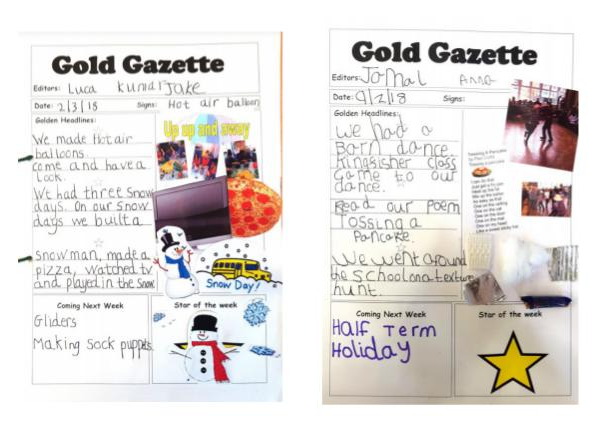 Gold Gazette
Editors: Luca Kunal Jake
Date: 2/3/18 Signs: Hot air balloon
Golden Headlines:
We made Hot air
balloons.
come and have a
Look.
We had three Snow
days. On our snow
days we built a
Snowman, made a
pizza, watched tv
and played in the Snow
Up up and away
Snow Day!
Coming Next Week
Gliders
Making Sock puppets.
Star of the week
Gold Gazette
Editors: Jamal Anna
Date: 9/2/18 Signs:
Golden Headlines:
We had a
Barn dance.
Kingfisher class
Came to our
dance.
Read our Poem
Tossing a
Pancake.
We went around
the school on a texture
hunt.
Coming Next Week
Half Term
Holiday
Star of the week